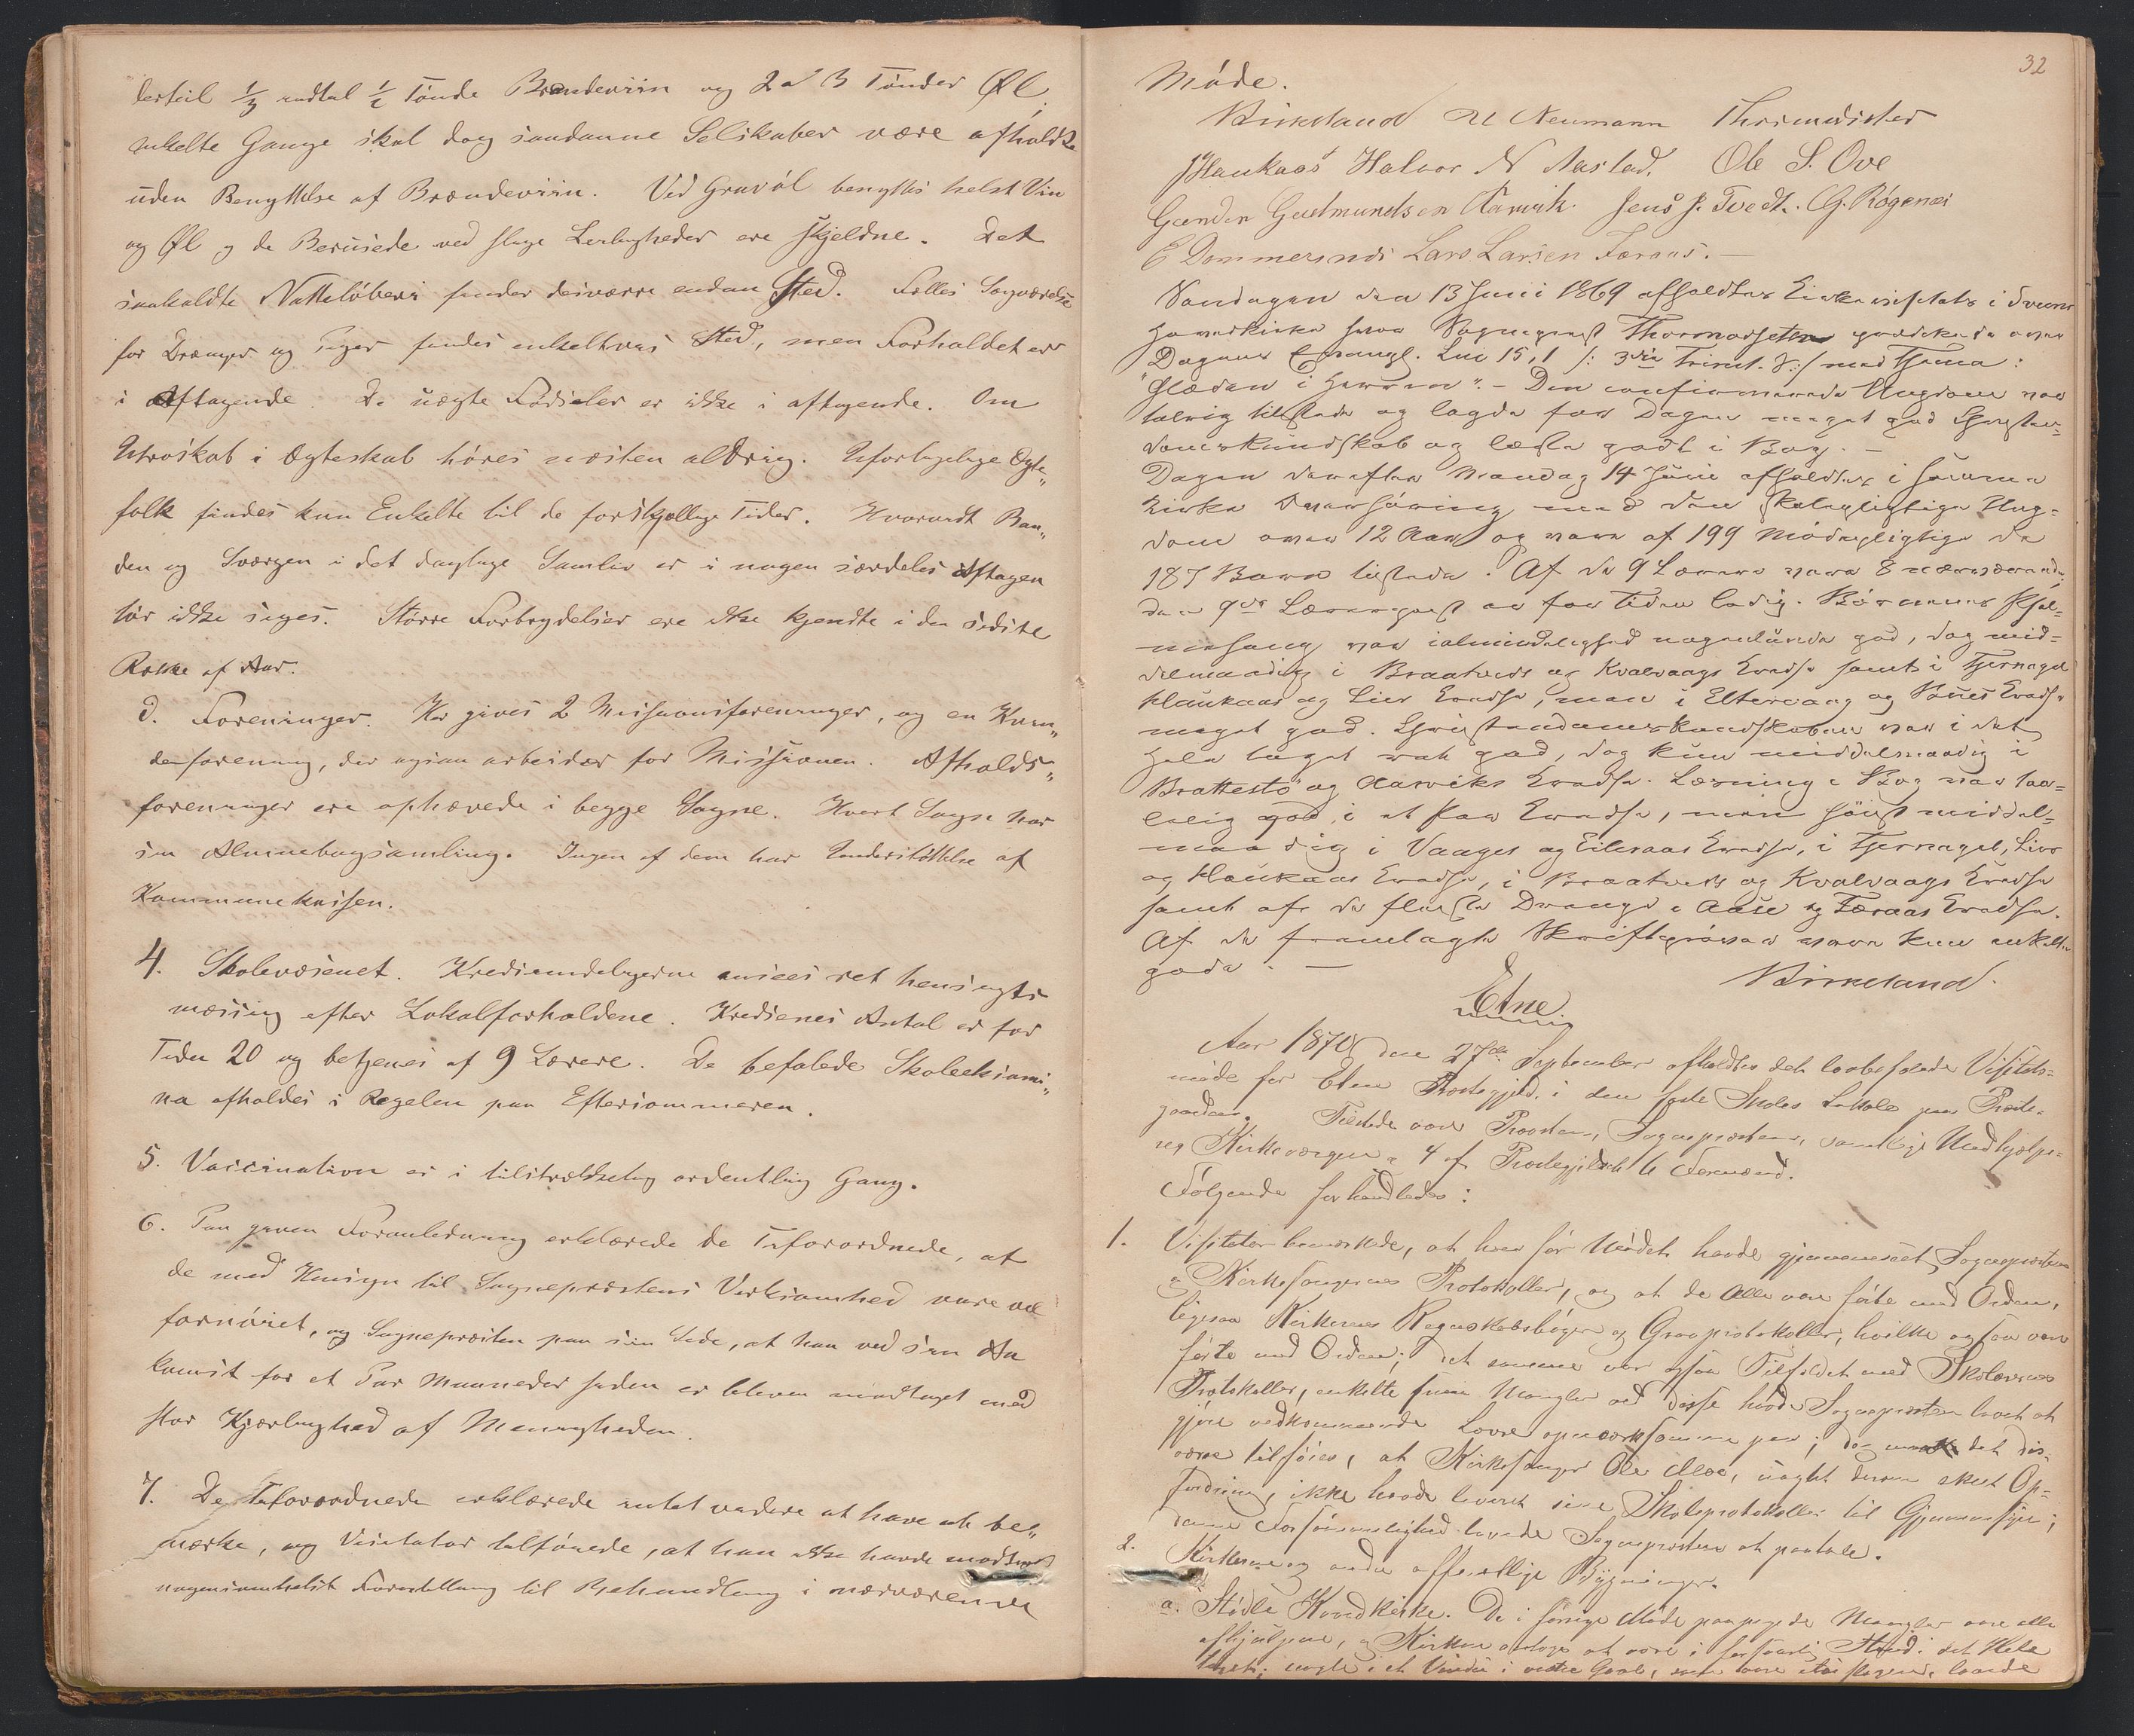 dertil 1/3 indtil 1/2 Tönde Brændeviin og 2 a 3 Tönder Øl
enkelte Gange skal dog saadanne Selskaber være afholdte
uden Benyttelse af Brændeviin. Ved Gravöl benyttes helst Vin
og Øl og de Berusede ved slige Leiligheder ere sjeldne. Det
saakaldte Natteløberi finder desværre endnu Sted. Fælles Sovværelse
for Drenge og Piger findes enkeltvis Sted, men Forholdet er
i Aftagende. De uægte Födsler er ikke i aftagende. Om
Utroskab i Ægteskab höres næsten aldrig. Uforligelige Ægte„
folk findes kun Enkelte til de forskjellige Tider. Hvorvidt Ban„
den og Sværgen i det daglige Samliv er i nogen særdeles Aftagen
tör ikke siges. Större Forbrydelser ere ikke kjendte i den sidste
Række af Aar.
d. Foreninger. Her gives 2 Missionsforeninger, og en Kvin„
deforening, der ogsaa arbeider for Missionen. Afholds„
foreninger ere ophævede i begge Sogne. Hvert Sogn har
sin Almuebogsamling. Ingen af dem har Understöttelse af
Kommunekassen.
4. Skolevæsenet. Kredsinddelingerne ansees ret hensigts
mæssig efter Lokalforholdene. Kredsenes Antal er for
Tiden 20 og betjenes af 9 Lærere. De befalede Skoleexami„
na afholdes i Regelen paa Eftersommeren.
5. Vaccination er i tilstrækkelig ordentlig Gang.
6. Paa given Foranledning erklærede de Tilforordnede, at
de med Hensyn til Sognepræstens Virksomhed vare vel
fornöiet, og Sognepræsten paa sin Side, at han ved sin An
komst for et Par Maaneder siden er bleven modtaget med
stor Kjærlighed af Menigheden.
7. De Tilforordnede erklærede intet videre at have at be„
mærke, og Visitator tilföiede, at han ikke havde modtaget
nogensomhelst Forestilling til Behandling i nærværende
32
Möde.
Birkeland M Neumann Thormodsæter
J Haukaas Halvor N Aastad. Ole S. Ove
Gunder Gudmundsen Aarvik. Jens J. Tvedt. G. Rögenæs
E Dommersnæs Lars Larsen Færaas. —
Söndagen den 13 Juni 1869 afholdtes Kirkevisitats i Sveens
Hovedkirke hvor Sognepræst Thormodsæter prædikede over
Dagens Evangl. Luc 15,1 /: 3die Trinit. S:/ med Thema:
"Glæden i Herren". — Den confirmerede Ungdom var
talrig tilstede og lagde for Dagen meget god Christen=
domskundskab og læste godt i Bog. —
Dagen derefter Mandag 14 Juni afholdtes i samme
Kirke Overhöring med den skolepligtige Ung=
dom over 12 Aar og vare af 199 Mödepligtige de
187 Børn tilstede. Af de 9 Lærere vare 8 nærværende,
den 9de Lærerpost er for Tiden ledig. Börnenes Psal=
mesang var i almindelighed nogenlunde god, dog mid=
delmaadig i Braatveds og Kvalvaags Kreds samt i Tjernagel
Haukaas og Lier Kreds, men i Eltervaag og Vaaes Kreds
meget god. Christendomskundskaben var i det
Hele taget ret god, dog kun middelmaadig i
Brattestö og Aarviks Kreds. Læsning i Bog var taa=
lelig god i et Par Kredse, men höist middel=
maadig i Vaages og Eileraas Kreds, i Tjernagel, Liers
og Haukaas Kreds, i Braatveds og Kvalvaags Kreds
samt af de fleste Drenge i Aase og Færaas Kreds.
Af de fremlagte Skriftpröver vare kun enkelte
gode. —
Birkeland.
Etne
Aar 1870 den 27de September afholdtes det lovbefalede Visitats=
möde for Etne Præstegjeld i den faste Skoles Lokale paa Præste=
gaarden. Tilstede vare Provsten, Sognepræsten, samtlige Medhjelpe=
re, Kirkeværgen & 4 af Præstegjeldets 6 Formænd.
Følgende forhandledes:
1. Visitator bemærkede, at han för Mödet havde gjennemseet Sognepræstens
& Kirkesangernes Protokoller, og at de Alle vare förte med Orden,
ligesaa Kirkernes Regnskabsböger og Graverprotokoller, hvilke ogsaa vare
förte med Orden; det samme var ogsaa Tilfældet med Skolelærernes
Protokoller, enkelte smaa Mangler ved disse havde Sognepræsten lovet at
gjöre vedkommende Lærere opmærksomme paa; dog maatte det des=
værre tilföies, at Kirkesanger Ole Moe, uagtet derom skeet Op=
fordring, ikke havde leveret sine Skoleprotokoller til Gjennemsyn;
denne Forsömmelighed lovede Sognepræsten at paatale.
2. Kirkerne og andre offentlige Bygninger.
a. Stödle Hovedkirke. De i forrige Möde paapegede Mangler vare alle
afhjulpne, og Kirken antoges at være i forsvarlig Stand i det Hele
taget; nogle i et Vindue i vestre Gavl, som vare itu slagne, lovede